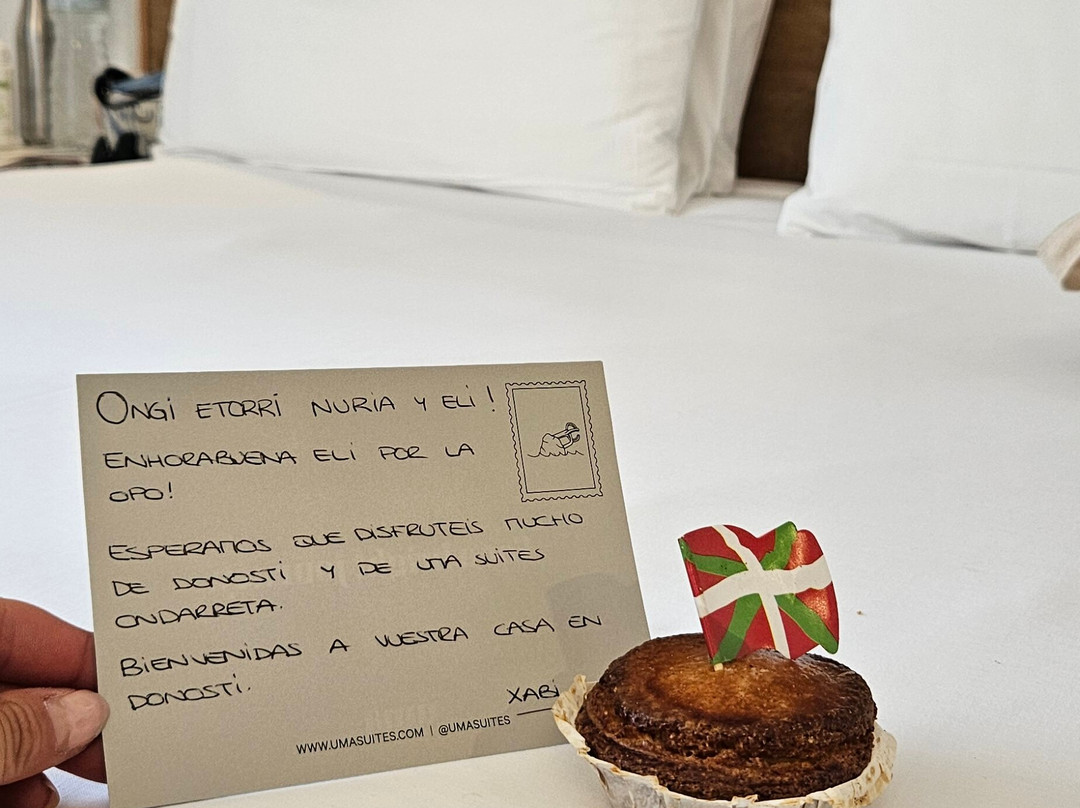 ONGI ETORRI NURIA Y ELI!
ENHORABUENA ELI POR LA
OPO!
ESPERAMOS QUE DISFRUTEIS MUCHO
DE DONOSTI Y DE UMA SUITES
ONDARRETA.
BIENVENIDAS A VUESTRA CASA EN
DONOSTI.
XABI
WWW.UMASUITES.COM | @UMASUITES